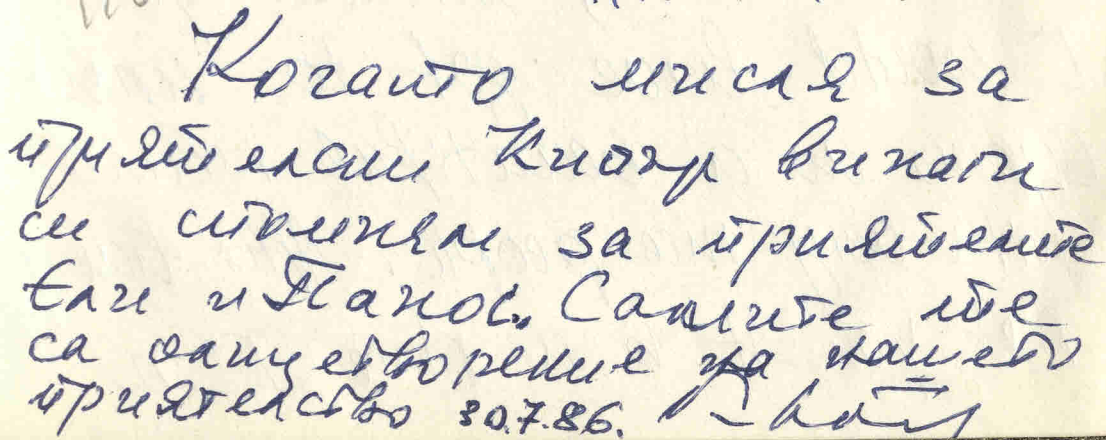 Когато мисля за
приятелски Кипър винаги
си спомням за приятелите
Ели и Панос. Самите те
са олицетворение на нашето
приятелство 30.7.86.